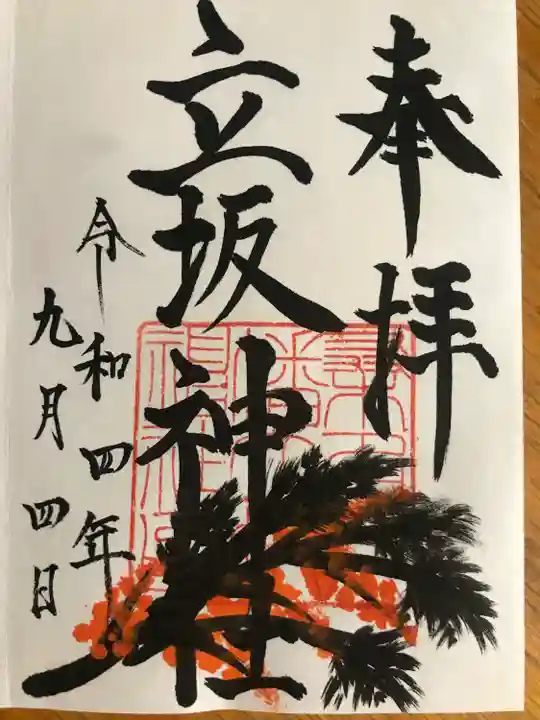 奉拝
立坂神社
令和四年
九月四日